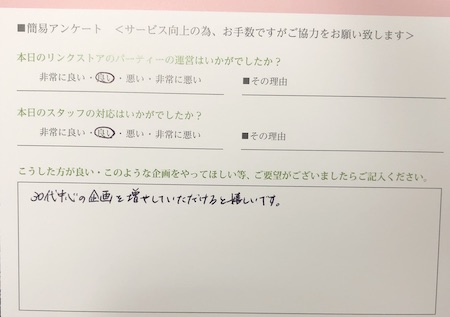 ■簡易アンケート ＜サービス向上の為、お手数ですがご協力をお願い致します＞
本日のリンクストアのパーティーの運営はいかがでしたか？
非常に良い・良い・悪い・非常に悪い ■その理由
本日のスタッフの対応はいかがでしたか？
非常に良い・良い・悪い・非常に悪い ■その理由
こうした方が良い・このような企画をやってほしい等、ご要望がございましたらご記入ください。
30代中心の企画を増やしていただけると嬉しいです。